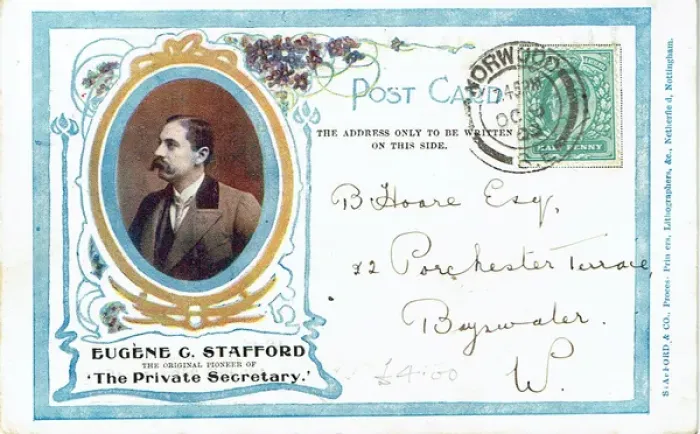 POST CARD
THE ADDRESS ONLY TO BE WRITTEN
ON THIS SIDE.
NORWOOD
OC
HALF PENNY
B Hoare Esq,
22 Porchester Terrace,
Bayswater.
W.
£4.00
EUGÈNE C. STAFFORD
THE ORIGINAL PIONEER OF
'The Private Secretary.'
STAFFORD & CO., Process Printers, Lithographers, &c., Netherfield, Nottingham.